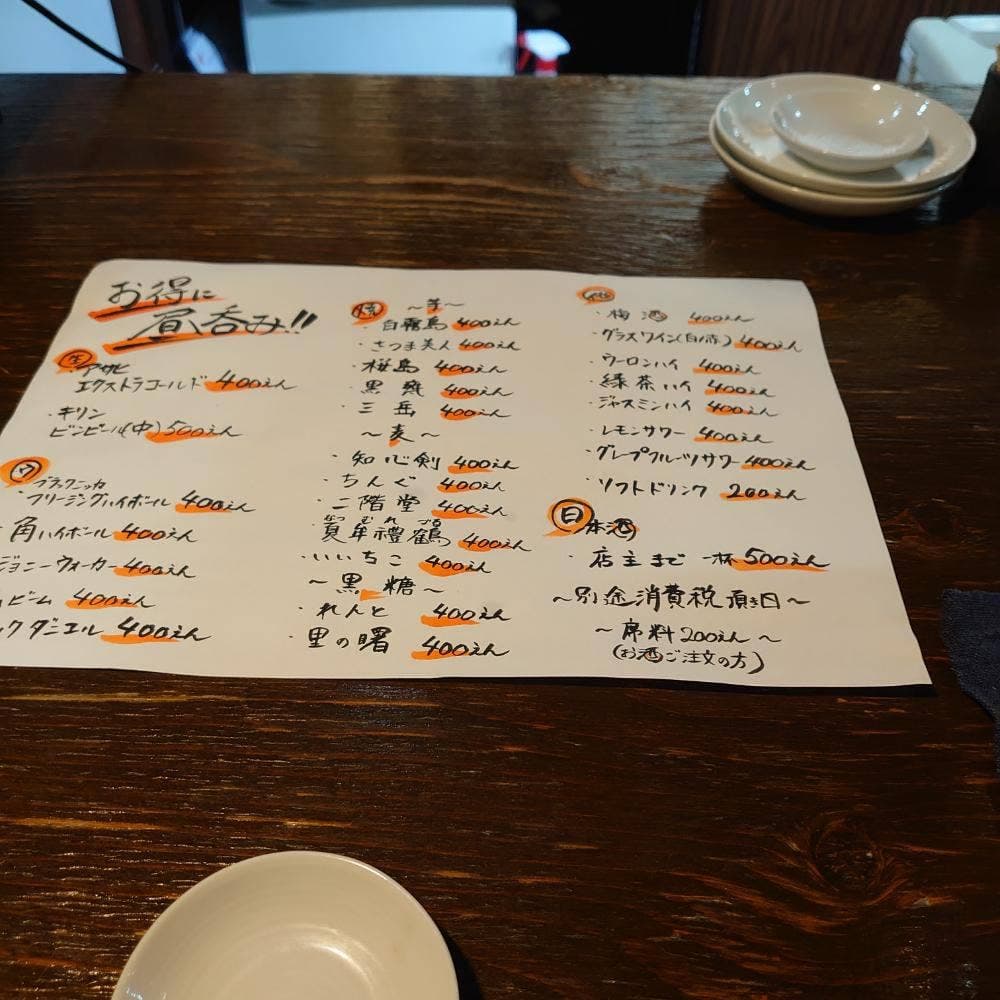 お得に
昼呑み!!
生
・アサヒ
エクストラゴールド 400えん
・キリン
ビンビール(中) 500えん
ウ
ブラックニッカ
・フリージングハイボール 400えん
・角ハイボール 400えん
ジョニーウォーカー 400えん
ビーム 400えん
ックダニエル 400えん
焼
～芋～
・白霧島 400えん
・さつま美人 400えん
・桜島 400えん
・黒甕 400えん
・三岳 400えん
～麦～
・知心剣 400えん
・ちんぐ 400えん
・二階堂 400えん
・賀牟禮鶴 400えん
・いいちこ 400えん
～黒糖～
・れんと 400えん
・里の曙 400えん
他
・梅酒 400えん
・グラスワイン(白/赤) 400えん
・ウーロンハイ 400えん
・緑茶ハイ 400えん
・ジャスミンハイ 400えん
・レモンサワー 400えん
・グレープフルーツサワー 400えん
・ソフトドリンク 200えん
日本酒
・店主まで 一杯500えん
～別途消費税頂き日～
～席料200えん～
(お酒ご注文の方)